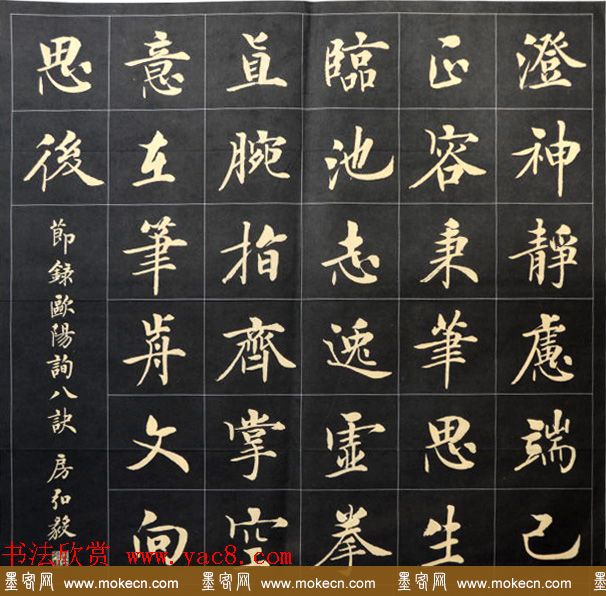 澄神靜慮端己
正容秉筆思生
臨池志逸虛拳
直腕指齊掌空
意在筆歬文向
思後
節録歐陽詢八訣 房弘毅
书法欣赏 www.yac8.com
墨客网 www.mokecn.com 墨客网 www.mokecn.com 墨客网 www.mokecn.com